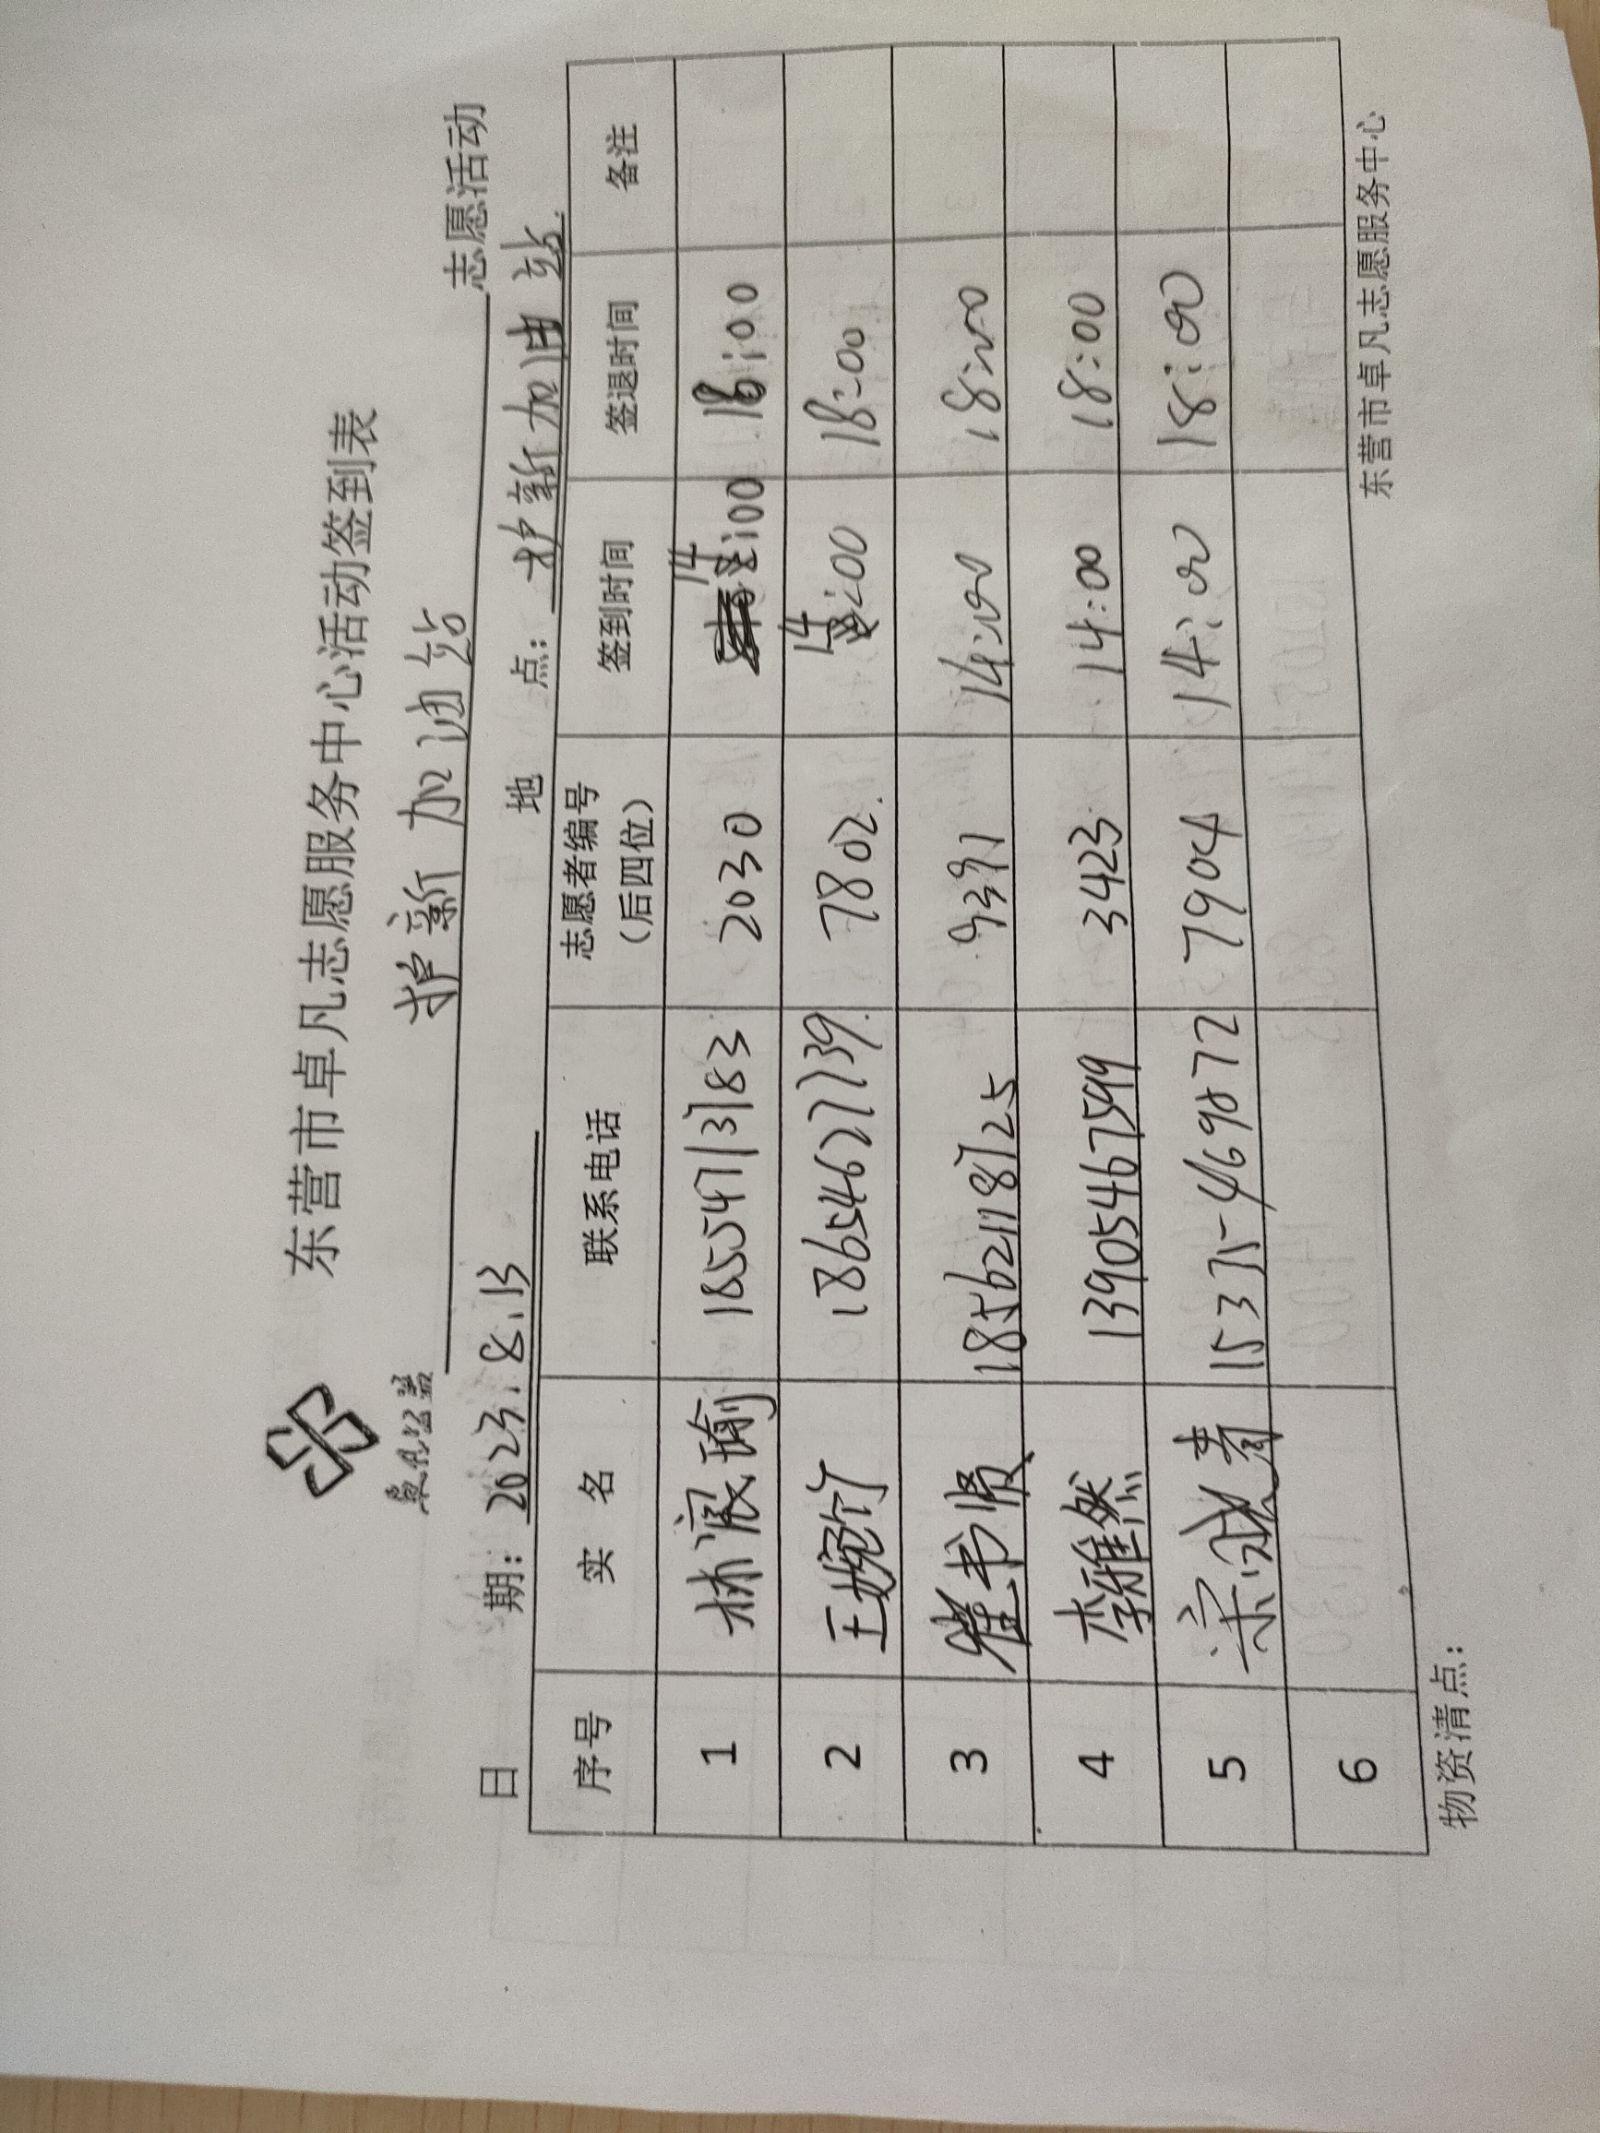 东营市卓凡志愿服务中心活动签到表
护新加油站 志愿活动
日 期：2023.8.13 地 点：护新加油站
序号 实 名 联系电话 志愿者编号（后四位） 签到时间 签退时间 备注
1 林宸瑜 18554713183 2030 14:00 18:00
2 王婉竹 18654627739 7802 14:00 18:00
3 崔书贤 18562118725 9391 14:00 18:00
4 李雅然 13905467599 3423 14:00 18:00
5 宗斌青 15375469872 7904 14:00 18:00
6
物资清点： 东营市卓凡志愿服务中心